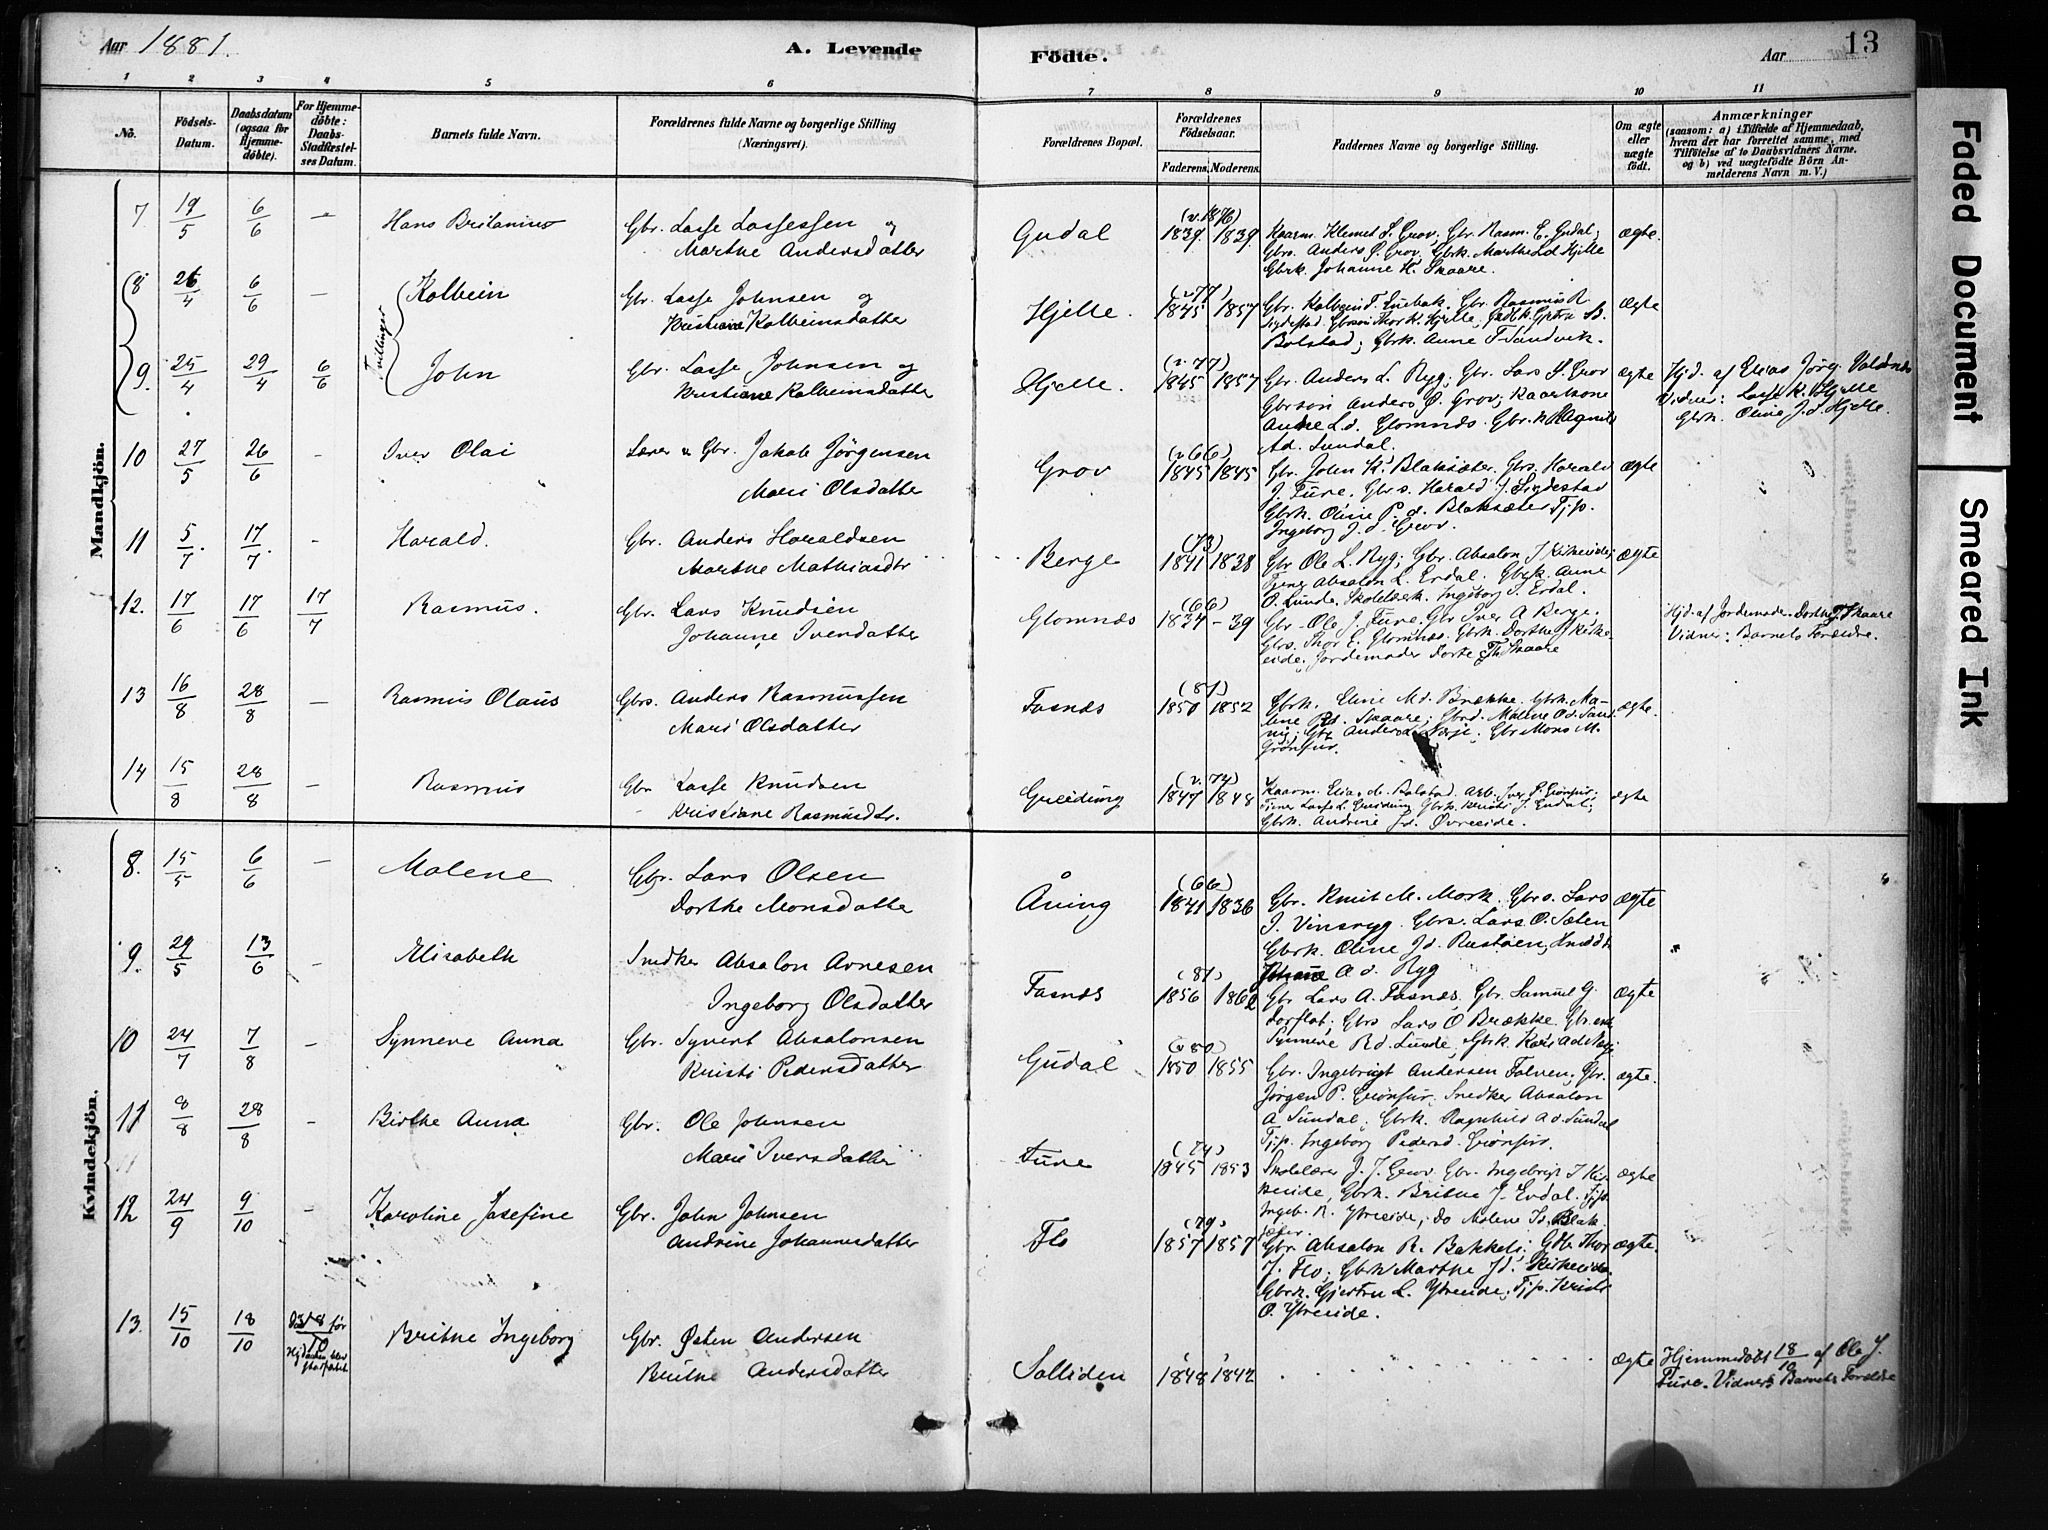 Aar 1881.
A. Levende
Födte.
Aar
13
1 2 3 4 5 6 7 8 9 10 11
No.
Födsels-Datum.
Daabsdatum (ogsaa for Hjemme-döbte).
For Hjemme-döbte: Daabs-Stadfæstel-ses Datum.
Barnets fulde Navn.
Forældrenes fulde Navne og borgerlige Stilling (Næringsvei).
Forældrenes Bopæl.
Forældrenes Födselsaar.
Faderens. Moderens.
Faddernes Navne og borgerlige Stilling.
Om ægte eller uægte födt.
Anmærkninger
(saasom: a) i Tilfælde af Hjemmedaab,
hvem der har forrettet samme, med
Tilföielse af to Daabsvidners Navne.
og b) ved uægtefödte Börn An-
melderens Navn m. V.)
Mandkjön.
7 19/5 6/6 — Hans Britanius Gbr. Lasse Lassessen og
Marthe Andersdatter
Gudal (v. 1876) 1839. 1839. Kaarm. Klemet S. Grov, Gbr. Rasm. E. Gudal,
Gbrs. Anders O. Grov, Gbrk. Marthe Ld Hjelle
Gbrk. Johanne H. Skaare.
ægte.
8 26/4 6/6 — Tvillinger Kolbein Gbr. Lasse Johnsen og
Kristiane Kolbeinsdatter
Hjelle. (v 77) 1845 1857 Gbr. Kolbein T. Gbr. Rasmus R.
Gbrsøn Thor K. Hjelle,
Bolstad; Gbrk. Anne T Sandvik.
ægte
9. 25/4 29/4 6/6 John Gbr. Lasse Johnsen og
Kristiane Kolbeinsdatter
Hjelle. (v. 77) 1845 1857 Gbr. Anders L. Ryg, Gbr. Lars S. Grov
Gbrsøn Anders O. Grov; Kaarkone
Anne L.d. Glomnes. Gbr.k. Magnild
Ad. Sundal.
ægte Hjd. af Elias Jørg. Valdnes
Vidner: Lasse K. Hjelle
Gbrk. Oline J.d. Hjelle.
10 27/5 26/6 - Iver Olai Lærer & Gbr. Jakob Jörgensen
Mari Olsdatter
Grov (v 66) 1845 1845 Gbr. John K. Blaksæter. Gbrs. Harald
J. Fure. Gbrs. Harald J. Sindestad
Gbrk. Oline P. d. Blaksæter Tj.p.
Ingeborg J. d. Grov.
ægte
11 5/7. 17/7. - Harald. Gbr. Anders Haraldsen
Marthe Mathiasdtr
Berge (73) 1841 1838 Gbr Ole L. Ryg; Gbr. Absalon J Kirkeide;
Tener Absalon L. Erdal. Gbrk. Anne
O. Lunde, Skolelærk. Ingeborg S. Erdal.
ægte
12. 17/6 17/6 17/7 Rasmus. Gbr. Lars Knudsen
Johanne Iversdatter
Glomnæs (66) 1834 - 39 Gbr - Ole J. Fure. Gbr Iver A Berge.
Gbrs. Thor E. Glomnæs. Gbrk. Dorthe J Kirke-
eide, Jordemoder Dorte Th Skaare
Hjd. af Jordemoder Dorthe T Skaare
Vidner: Barnets Foreldre.
13 16/8 28/8 — Rasmus Olaus Gbrs. Anders Rasmussen
Mari Olsdatter
Fosnæs (81) 1850 1852 Gbrk. Eline M d. Brække. Gbrk. Ma-
lene Rd. Skaare; Gbrd. Malene O d. Sand-
nig; Gbr Anders Gbr Mons M.
Grønfur.
ægte.
14 15/8 28/8 — Rasmus Gbr Lasse Knudsen
Kristiane Rasmusdtr.
Greidung (v. 74) 1847 1848 Kaarm. Elias Bolstad. Arb. Iver P. Grönfur;
Tener Lasse L. Greidung Gbrk. Kristi J. Erdal;
Gbrk. Andrine Jd. Øvreeide.
ægte
Kvindekjön.
8. 15/5 6/6 — Malene Gbr. Lars Olsen
Dorthe Monsdatter
Åning (66) 1841 1836 Gbr. Knut M. Mork. Gbrs. Lars
J. Vinsryg. Gbrs. Lars O. Sæten
Gbrk. Oline Jd. Rustøen,
A d. Ryg
ægte
9. 29/5 13/6 - Elisabeth Snedker Absalon Arnesen
Ingeborg Olsdatter
Fosnæs (81) 1856 1862 Gbr Lars A. Fosnæs, Gbr. Samuel G.
Gbrs Lars O Brække.
Synneve R d. Lunde, Gbrk. Kari
ægte
10 24/7 7/8 - Synneve Anna Gbr. Syvert Absalonsen
Kristi Pedersdatter
Gudal (v 80) 1850 1855 Gbr. Ingebrigt Andersen Folven; Gbr.
Jörgen P. Grönfur, Snedker Absalon
A Sundal; Gbrk. Ragnhild A d. Sundal
Tj.p. Ingeborg Pedersd. Grönfur.
ægte.
11 8/8 28/8 - Birthe Anna Gbr. Ole Johnsen
Mari Iversdatter
Fure (74) 1845 1853 Skolelærer J. J. Grov Gbr. Ingebrigt J Kir-
keeide, Gbrk. Brithe J. Erdal. Tj.p.
Ingeb. R. Ytreeide; Do Malene Id. Blak-
sæter.
ægte
12 24/9 9/10 - Karoline Josefine Gbr. John Johnsen
Andrine Johannesdatter
Flo (79) 1857 1857 Gbr Absalon R. Bakkeli; Gbr. Thor
J. Flo; Gbrk Marthe Jd. Kirkeide
Gbrk. Gjertru L. Ytreeide; Tj.p. Kristi
O. Ytreeide.
ægte.
13. 15/10 18/10 Död 18/10 før Hjdaaben blev stadfæstet Brithe Ingeborg Gbr. Østen Andersen
Brithe Andersdatter
Solliden 1848 1842 ægte Hjemmedöbt 18/10 af Ole J.
Fure. Vidners Barnets Foreldre
Faded Document
Smeared Ink